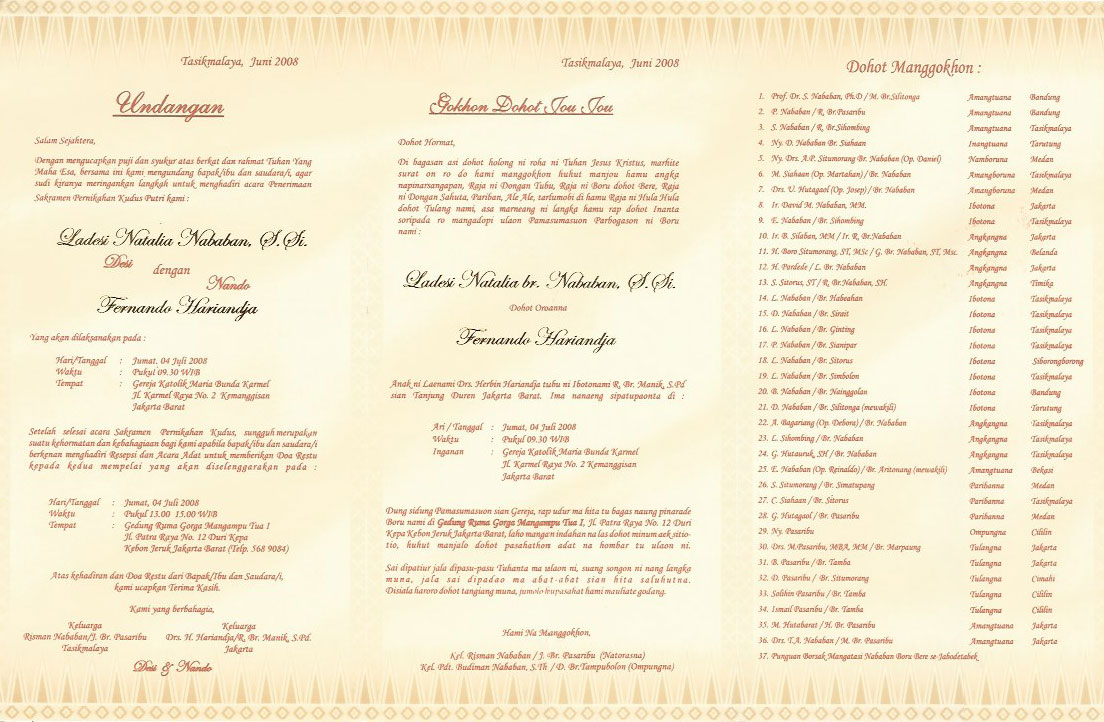 Tasikmalaya, Juni 2008
Undangan
Salam Sejahtera,
Dengan mengucapkan puji dan syukur atas berkat dan rahmat Tuhan Yang
Maha Esa, bersama ini kami mengundang bapak/ibu dan saudara/i, agar
sudi kiranya meringankan langkah untuk menghadiri acara Penerimaan
Sakramen Pernikahan Kudus Putri kami :
Ladesi Natalia Nababan, S.Si.
Desi
dengan
Nando
Fernando Hariandja
Yang akan dilaksanakan pada :
Hari/Tanggal : Jumat, 04 Juli 2008
Waktu : Pukul 09.30 WIB
Tempat : Gereja Katolik Maria Bunda Karmel
Jl. Karmel Raya No. 2 Kemanggisan
Jakarta Barat
Setelah selesai acara Sakramen Pernikahan Kudus, sungguh merupakan
suatu kehormatan dan kebahagiaan bagi kami apabila bapak/ibu dan saudara/i
berkenan menghadiri Resepsi dan Acara Adat untuk memberikan Doa Restu
kepada kedua mempelai yang akan diselenggarakan pada :
Hari/Tanggal : Jumat, 04 Juli 2008
Waktu : Pukul 13.00 15.00 WIB
Tempat : Gedung Ruma Gorga Mangampu Tua I
Jl. Patra Raya No. 12 Duri Kepa
Kebon Jeruk Jakarta Barat (Telp. 568 9084)
Atas kehadiran dan Doa Restu dari Bapak/Ibu dan Saudara/i,
kami ucapkan Terima Kasih.
Kami yang berbahagia,
Keluarga Keluarga
Risman Nababan/J. Br. Pasaribu Drs. H. Hariandja/R. Br. Manik, S.Pd.
Tasikmalaya Jakarta
Desi & Nando
Tasikmalaya, Juni 2008
Gokhon Dohot Jou Jou
Dohot Hormat,
Di bagasan asi dohot holong ni roha ni Tuhan Jesus Kristus, marhite
surat on ro do hami manggokhon huhut manjou hamu angka
napinarsangapan, Raja ni Dongan Tubu, Raja ni Boru dohot Bere, Raja
ni Dongan Sahuta, Pariban, Ale Ale, tarlumobi di hamu Raja ni Hula Hula
dohot Tulang nami, asa marneang ni langka hamu rap dohot Inanta
soripada ro mangadopi ulaon Panasumasuon Parbogason ni Boru
nami :
Ladesi Natalia br. Nababan, S.Si.
Dohot Oroanna
Fernando Hariandja
Anak ni Laenami Drs. Herbin Hariandja tubu ni Ibotonami R. Br. Manik, S.Pd
sian Tanjung Duren Jakarta Barat. Ima nanaeng sipatupaonta di :
Ari / Tanggal : Jumat, 04 Juli 2008
Waktu : Pukul 09.30 WIB
Inganan : Gereja Katolik Maria Bunda Karmel
Jl. Karmel Raya No. 2 Kemanggisan
Jakarta Barat
Dung sidung Pamasumasuon sian Gereja, rap udur ma hita tu bagas naung pinarade
Boru nami di Gedung Ruma Gorga Mangampu Tua I, Jl. Patra Raya No. 12 Duri
Kepa Kebon Jeruk Jakarta Barat, laho mangan indahan na las dohot minum aek sitio-
tio, huhut manjalo dohot pasahathon adat na hombar tu ulaon ni.
Sai dipatiur jala dipasu-pasu Tuhanta ma ulaon ni, suang songon ni nang langka
muna, jala sai dipadao ma abat-abat sian hita saluhutna.
Disiala haroro dohot tangiang muna, jumolo hupasahat hami mauliate godang.
Hami Na Manggokhon,
Kel. Risman Nababan / J. Br. Pasaribu (Natorasna)
Kel. Pdt. Budiman Nababan, S.Th / D. Br.Tampubolon (Ompungna)
Dohot Manggokhon :
1. Prof. Dr. S. Nababan, Ph.D / M. Br.Silitonga Amangtuana Bandung
2. P. Nababan / R. Br.Pasaribu Amangtuana Bandung
3. S. Nababan / R. Br.Sihombing Amangtuana Tasikmalaya
4. Ny. D. Nababan Br. Siahaan Inangtuana Tarutung
5. Ny. Drs. A.P. Situmorang Br. Nababan (Op. Daniel) Namboruna Medan
6. M. Siahaan (Op. Martahan) / Br. Nababan Amangboruna Tasikmalaya
7. Drs. U. Hutagaol (Op. Josep) / Br. Nababan Amangboruna Medan
8. Ir. David M. Nababan, MM. Ibotona Jakarta
9. E. Nababan / Br. Sihombing Ibotona Tasikmalaya
10. Ir. B. Silaban, MM / Ir. R. Br.Nababan Angkangna Jakarta
11. H. Boro Situmorang, ST, MSc / G. Br. Nababan, ST, Msc. Angkangna Belanda
12. H. Pardede / L. Br. Nababan Angkangna Jakarta
13. S. Sitorus, ST / R. Br.Nababan, SH. Angkangna Timika
14. L. Nababan / Br. Habeahan Ibotona Tasikmalaya
15. D. Nababan / Br. Sirait Ibotona Tasikmalaya
16. L. Nababan / Br. Ginting Ibotona Tasikmalaya
17. P. Nababan / Br. Sianipar Ibotona Tasikmalaya
18. L. Nababan / Br. Sitorus Ibotona Siborongborong
19. L. Nababan / Br. Simbolon Ibotona Tasikmalaya
20. B. Nababan / Br. Nainggolan Ibotona Bandung
21. D. Nababan / Br. Silitonga (mewakili) Ibotona Tarutung
22. A. Bagariang (Op. Debora) / Br. Nababan Angkangna Tasikmalaya
23. L. Sihombing / Br. Nababan Angkangna Tasikmalaya
24. G. Hutauruk, SH / Br. Nababan Angkangna Tasikmalaya
25. E. Nababan (Op. Reinaldo) / Br. Aritonang (mewakili) Amangtuana Bekasi
26. S. Situmorang / Br. Simatupang Paribanna Medan
27. C. Siahaan / Br. Sitorus Paribanna Tasikmalaya
28. G. Hutagaol / Br. Pasaribu Paribanna Medan
29. Ny. Pasaribu Ompungna Cililin
30. Drs. M.Pasaribu, MBA, MM / Br. Marpaung Tulangna Jakarta
31. B. Pasaribu / Br. Tamba Tulangna Jakarta
32. D. Pasaribu / Br. Situmorang Tulangna Cimahi
33. Solihin Pasaribu / Br. Tamba Tulangna Cililin
34. Ismail Pasaribu / Br. Tamba Tulangna Cililin
35. M. Hutabarat / H. Br. Pasaribu Amangtuana Jakarta
36. Drs. T.A. Nababan / M. Br. Pasaribu Amangtuana Jakarta
37. Punguan Borsak Mangatasi Nababan Boru Bere se-Jabodetabek